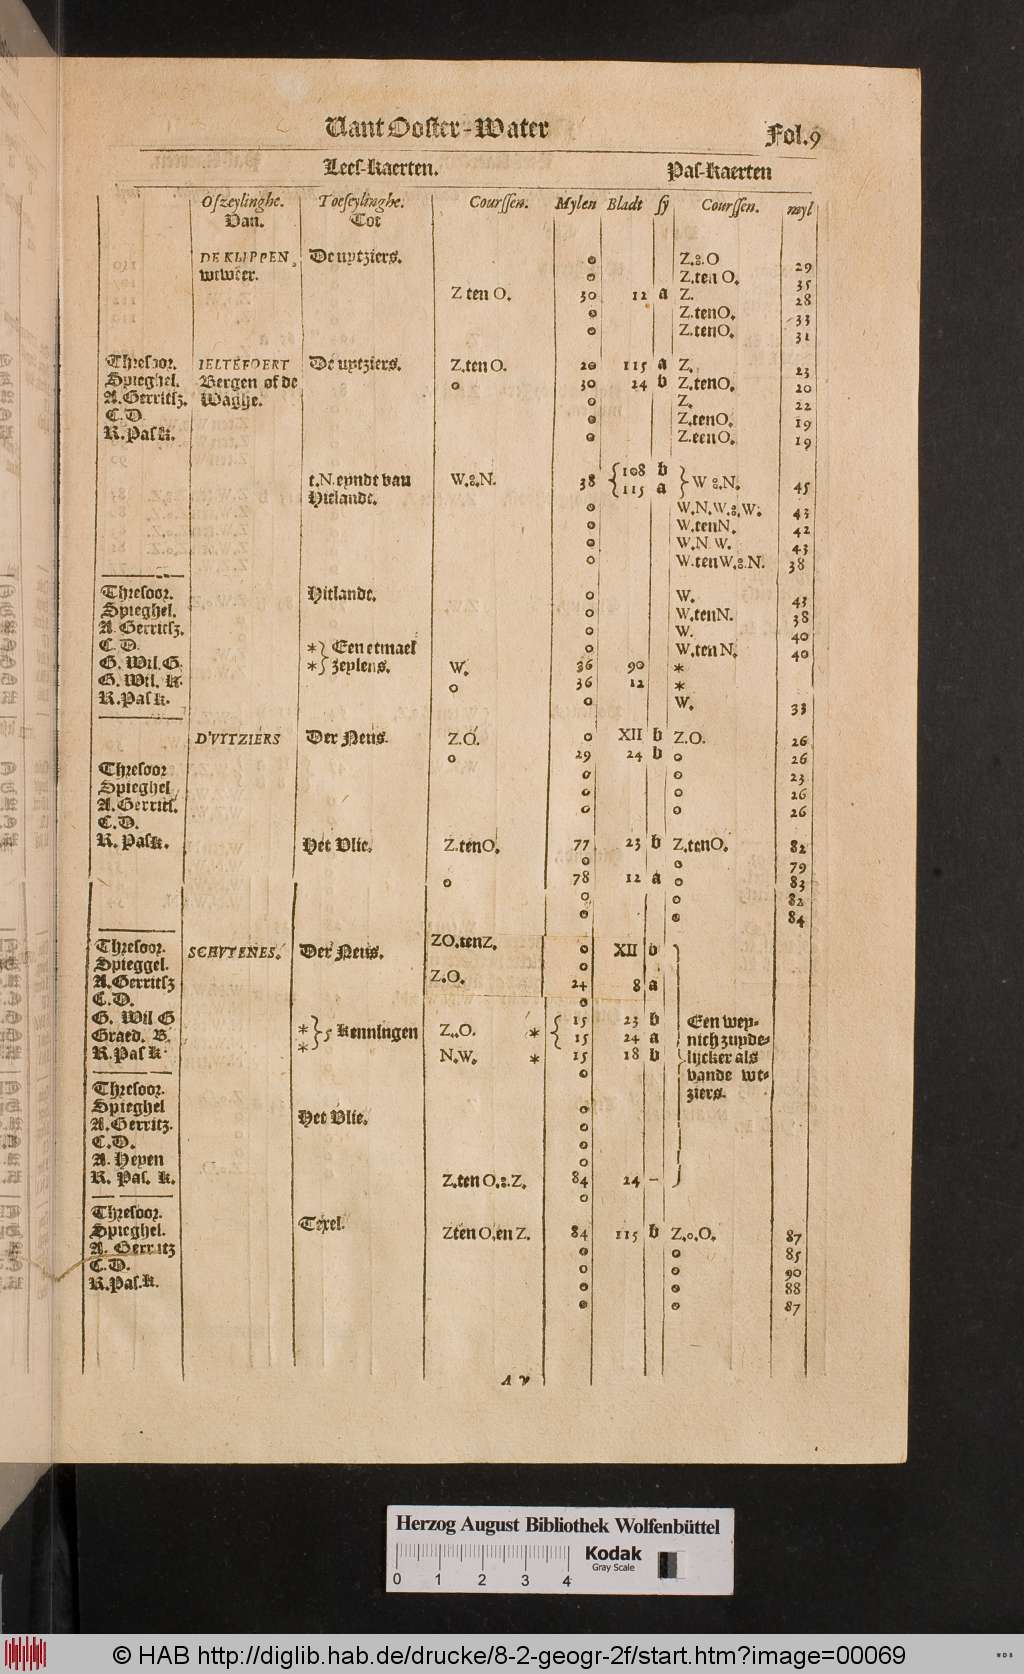 Vant Ooster-Water Fol.9
Lees-kaerten. Pas-kaerten
Ofzeylinghe. Toeseylinghe. Courssen. Mylen Bladt sy Courssen. myl
Van. Tot
DE KLIPPEN De uytziers. o Z.z.O 29
o Z.ten O. 35
Z ten O. 30 12 a Z. 28
o Z.tenO. 33
o Z.tenO. 31
Thresoor. IELTEFOERT De uytziers. Z.ten O. 20 115 a Z. 23
Spieghel. Bergen of de o 30 24 b Z.tenO. 20
A.Gerritsz. Waghe. o Z. 22
C.D. o Z.tenO. 19
R.Pask. o Z.tenO. 19
t.N.eynde van W.z.N. 38 { 108 b } W z.N. 45
Hitlande. 115 a
o W.N.W.z.W. 43
o W.tenN. 42
o W.N W. 43
o W.tenW.z.N. 38
Thresoor. Hitlande. o W. 43
Spieghel. o W.tenN. 38
A.Gerritsz. o W. 40
C.D. *} Een etmael o W.ten N. 40
G. Wil.G. *} zeylens. W. 36 90 *
G. Wil. k. o 36 12 *
R.Pas k. o W. 33
D'VYTZIERS Der Neus. Z.O. o XII b Z.O. 26
o 29 24 b o 26
Thresoor o o 23
Spieghel o o 26
A.Gerrits. o o 26
C.D.
R.Pask. Het Vlie. Z.tenO. 77 23 b Z.tenO. 82
o o 79
o 78 12 a o 83
o o 82
o o 84
Thresoor. SCHVTENES. Der Neus. ZO.tenZ. o XII b
Spieggel. o
A.Gerritsz Z.O. 24 8 a
C.D. o
G. Wil G * } 5 kenningen Z..O. * { 15 23 b Een wey-
Graed. B. * 15 24 a nich zuyde-
R.Pas k. N.W. * 15 18 b lijcker als
o vande wt-
Thresoor. ziers.
Spieghel Het Vlie. o
A.Gerritz. o
C.D. o
A. Heyen o
R. Pas. k. Z.ten O.z.Z. 84 24 –
o
Thresoor. Texel.
Spieghel. Zten O.en Z. 84 115 b Z.o.O. 87
A. Gerritz o o 85
C.D. o o 90
R.Pas.k. o o 88
o o 87
A v
Herzog August Bibliothek Wolfenbüttel
Kodak
Gray Scale
0 1 2 3 4
© HAB http://diglib.hab.de/drucke/8-2-geogr-2f/start.htm?image=00069